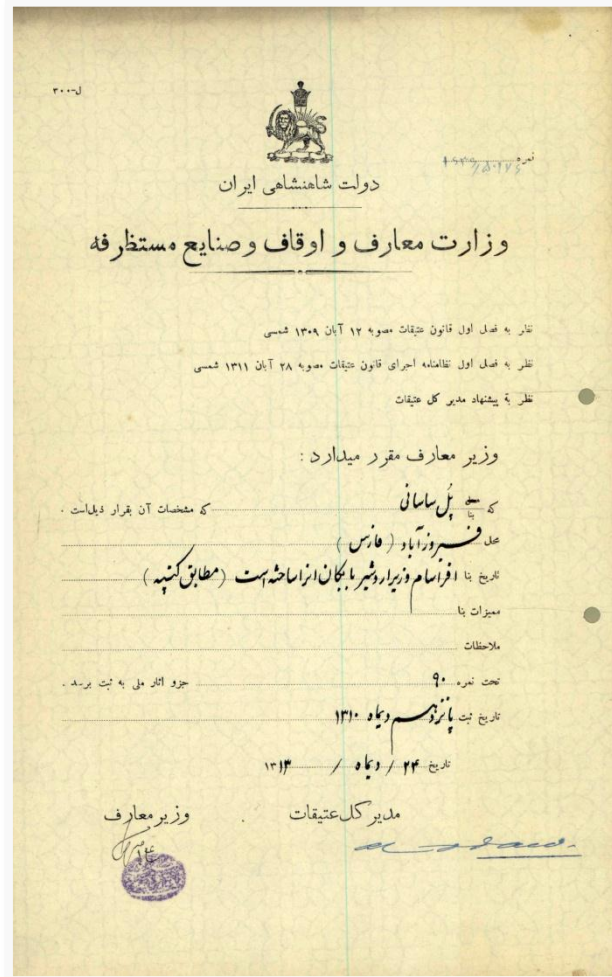 ل-۳۰۰
نمره
دولت شاهنشاهی ایران
وزارت معارف و اوقاف و صنایع مستظرفه
نظر به فصل اول قانون عتیقات مصوبه ۱۲ آبان ۱۳۰۹ شمسی
نظر به فصل اول نظامنامه اجرای قانون عتیقات مصوبه ۲۸ آبان ۱۳۱۱ شمسی
نظر بة پیشنهاد مدیر کل عتیقات
وزیر معارف مقرر میدارد :
که بنا پُل ساسانی که مشخصات آن بقرار ذیل‌است .
محل فیروزآباد ( فارس )
تاریخ بنا افراسام وزیر اردشیر بابکان انرا ساخته است ( مطابق کتیبه )
ممیزات بنا
ملاحظات
تحت نمره ۹۰ جزو آثار ملی به ثبت برسد .
تاریخ ثبت پانزدهم دیماه ۱۳۱۰
تاریخ ۲۴ / دیماه / ۱۳۱۳
مدیر کل عتیقات
وزیر معارف